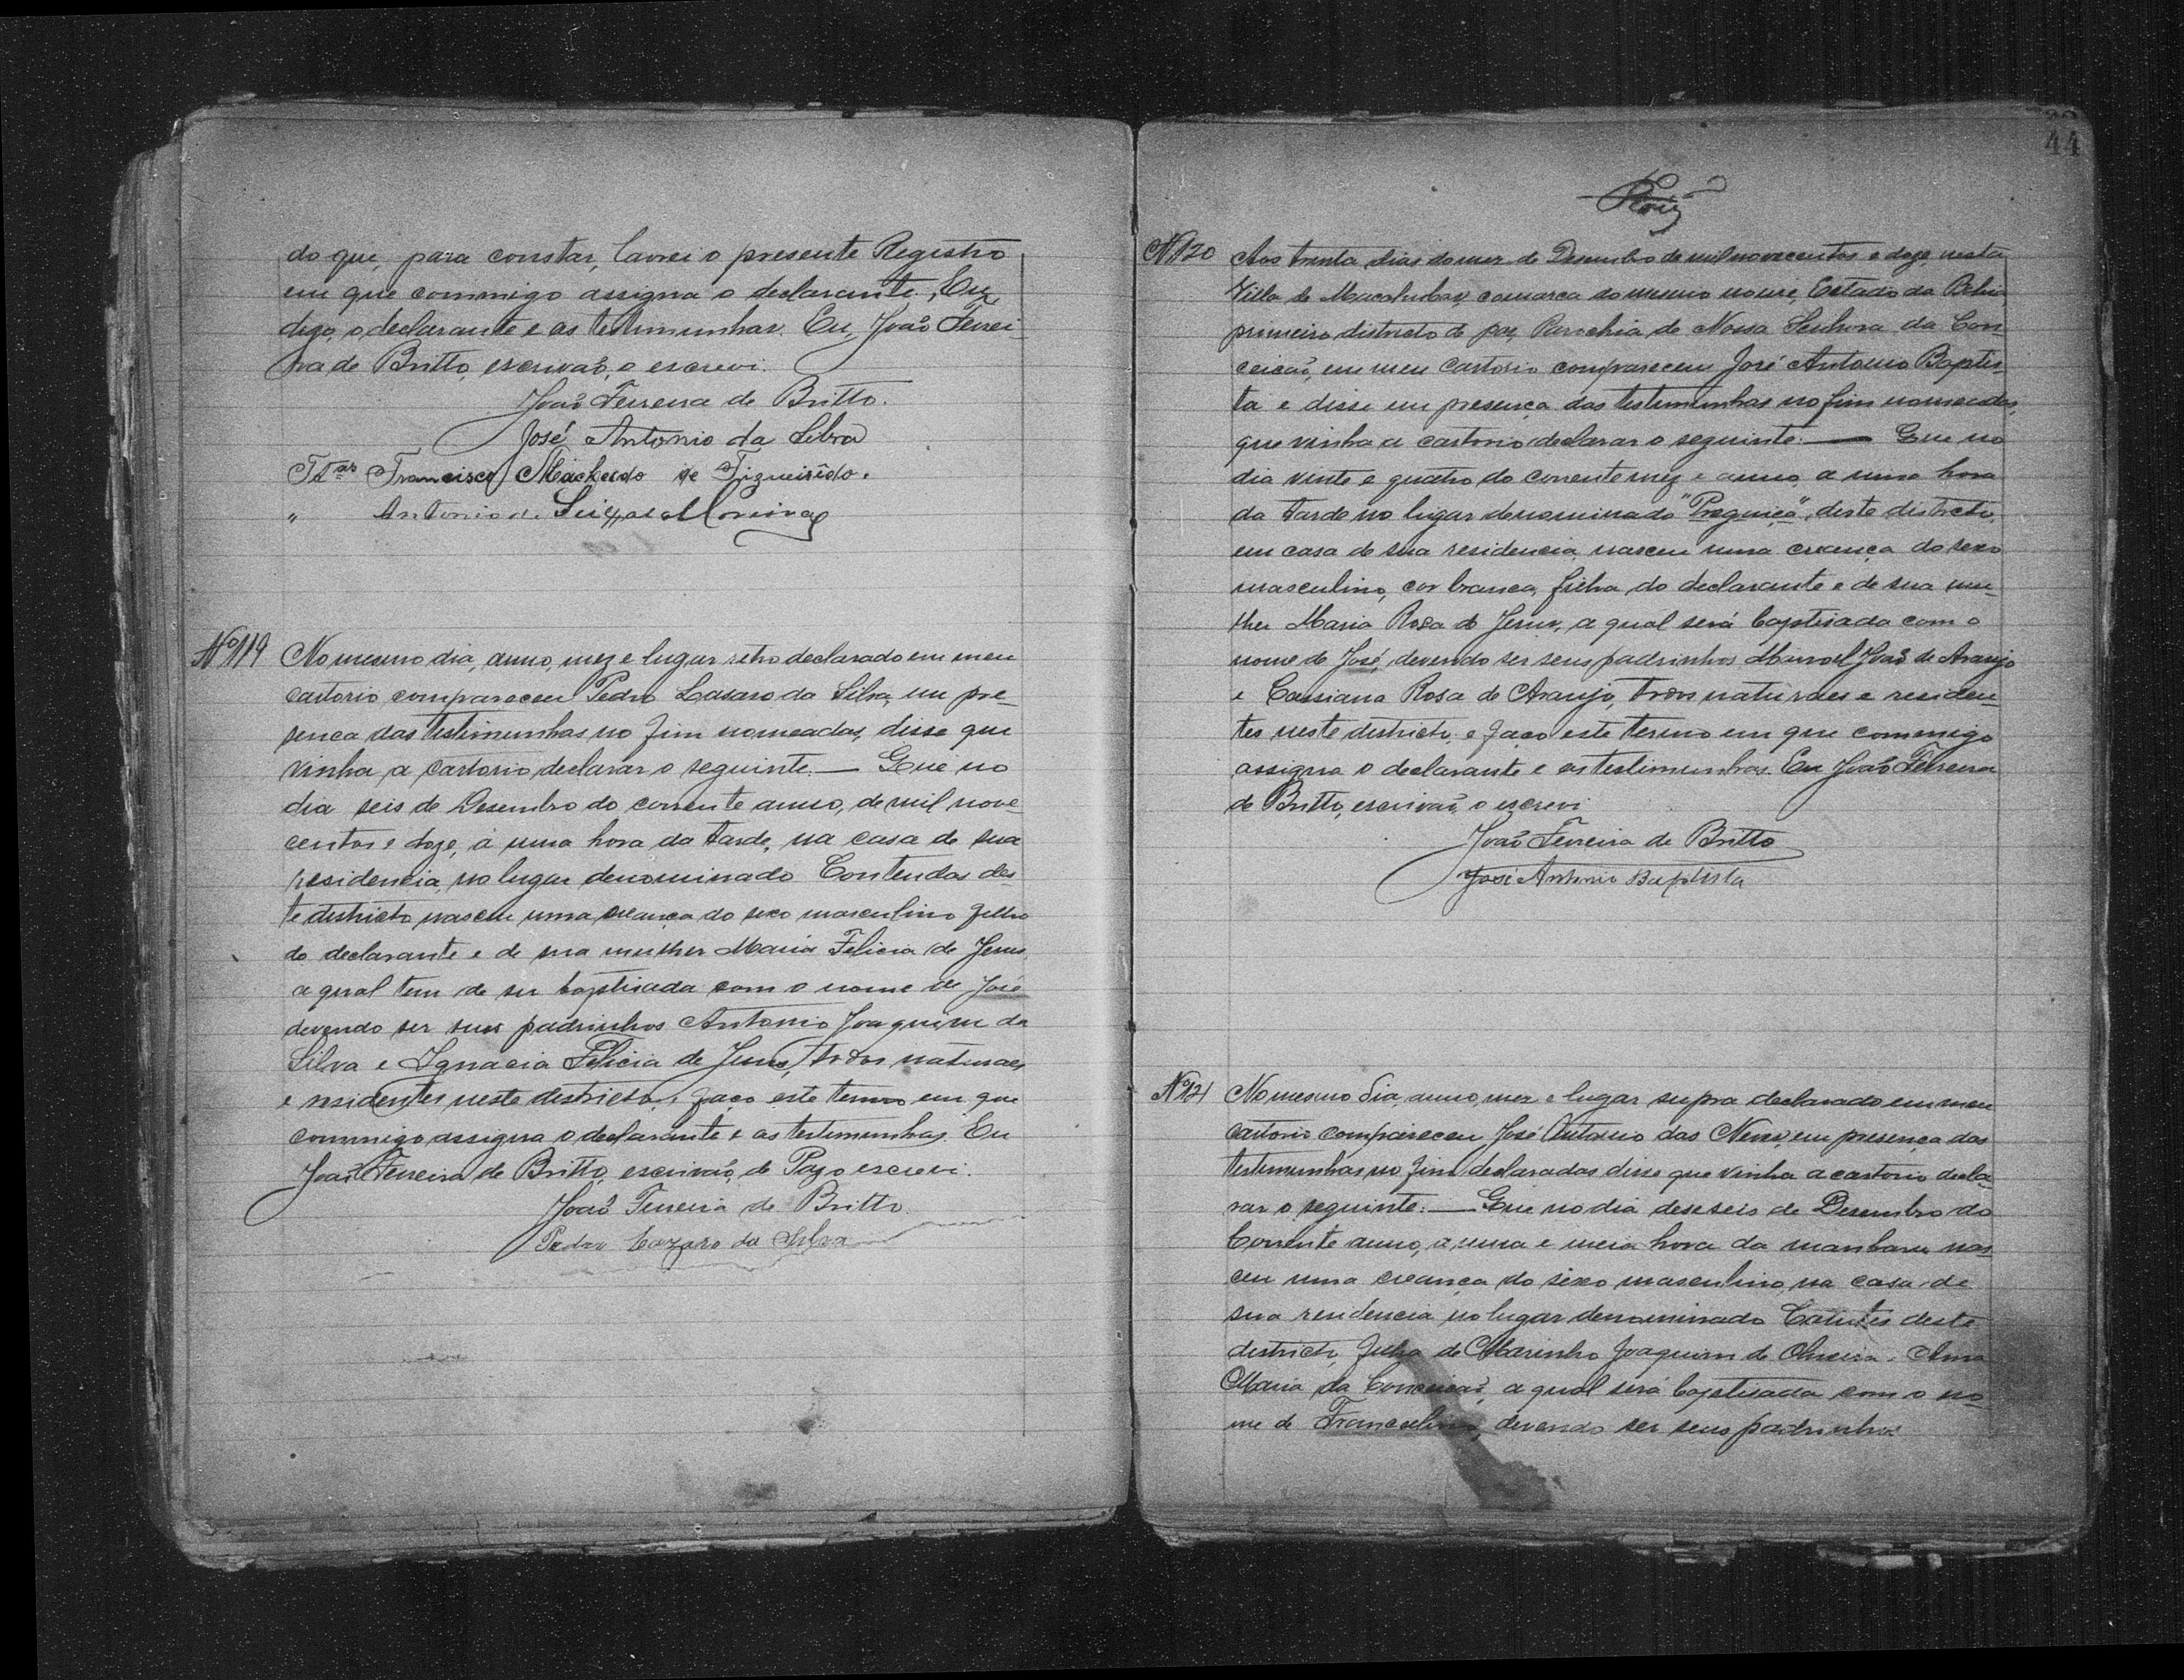 do que, para constar, lavrei o presente Registro
em que commigo assigna o declarante, Eu,
digo, o declarante e as testimunhas. Eu, João Ferrei-
ra de Britto, escrivão, o escrevi.
João Ferreira de Britto.
José Antonio da Silva
Tt.as Francisco Machado de Figueirêdo.
" Antonio
Nº 119 No mesmo dia, anno, mez e lugar retro declarado em meu
cartorio compareceu Pedro Lasaro da Silva, em pre-
senca das testimunhas no fim nomeadas, disse que
vinha a cartorio declarar o seguinte. — Que no
dia seis de Desembro do corrente anno, de mil nove
centos e doze, á uma hora da tarde, na casa de sua
residencia, no lugar denominado Contendas des-
te districto nasceu uma creança do sexo masculino filho
do declarante e de sua mulher Maria Felicia de Jesus,
a qual tem de ser baptisada com o nome de José
devendo ser seus padrinhos Antonio Joaquim da
Silva e Ignacia Felicia de Jesus, todos naturaes
e residentes neste districto, e faço este termo em que
commigo assigna o declarante e as testimunhas. Eu
João Ferreira de Britto, escrivão, de Paz o escrevi.
João Ferreira de Britto.
Pedro Lazaro da Silva
44
Nº 120 Aos trinta dias do mez de Desembro de mil novecentos e doze, nesta
Villa de Macahubas, comarca do mesmo nome, Estado da Bahia
primeiro districto de paz, Parochia de Nossa Senhora da Con
ceicão, em meu Cartorio compareceu José Antonio Baptis-
ta e disse em presença das testimunhas no fim nomeadas,
que vinha a cartorio declarar o seguinte: — Que no
dia vinte e quatro do corrente mez e anno, a uma hora
da tarde no lugar denominado "Preguiça", deste districto,
em casa de sua residencia nasceu uma creança do sexo
masculino, cor branca, filha do declarante e de sua mu-
lher Maria Rosa de Jesus, a qual será baptisada com o
nome de José, devendo ser seus padrinhos Manoel João de Araujo
e Cassiana Rosa de Araujo, todos naturaes e residen-
tes neste districto, e faço este termo em que commigo
assigna o declarante e as testimunhas. Eu João Ferreira
de Britto, escrivão, o escrevi
João Ferreira de Britto
José Antonio Baptista
Nº 121 No mesmo dia, anno, mez e lugar supra declarado em meu
cartorio compareceu José Antonio das Neves, em presença das
testimunhas no fim declaradas disse que vinha a cartorio decla-
rar o seguinte: — Que no dia deseseis de Desembro do
Corrente anno, a uma e meia hora da manham nas
ceu uma creança do sexo masculino, na casa de
sua residencia no lugar denominado deste
districto, filha de Marinho Joaquim de Oliveira e Anna
Maria da Conceicão, a qual será baptisada com o no-
me de Francelino, devendo ser seus padrinhos